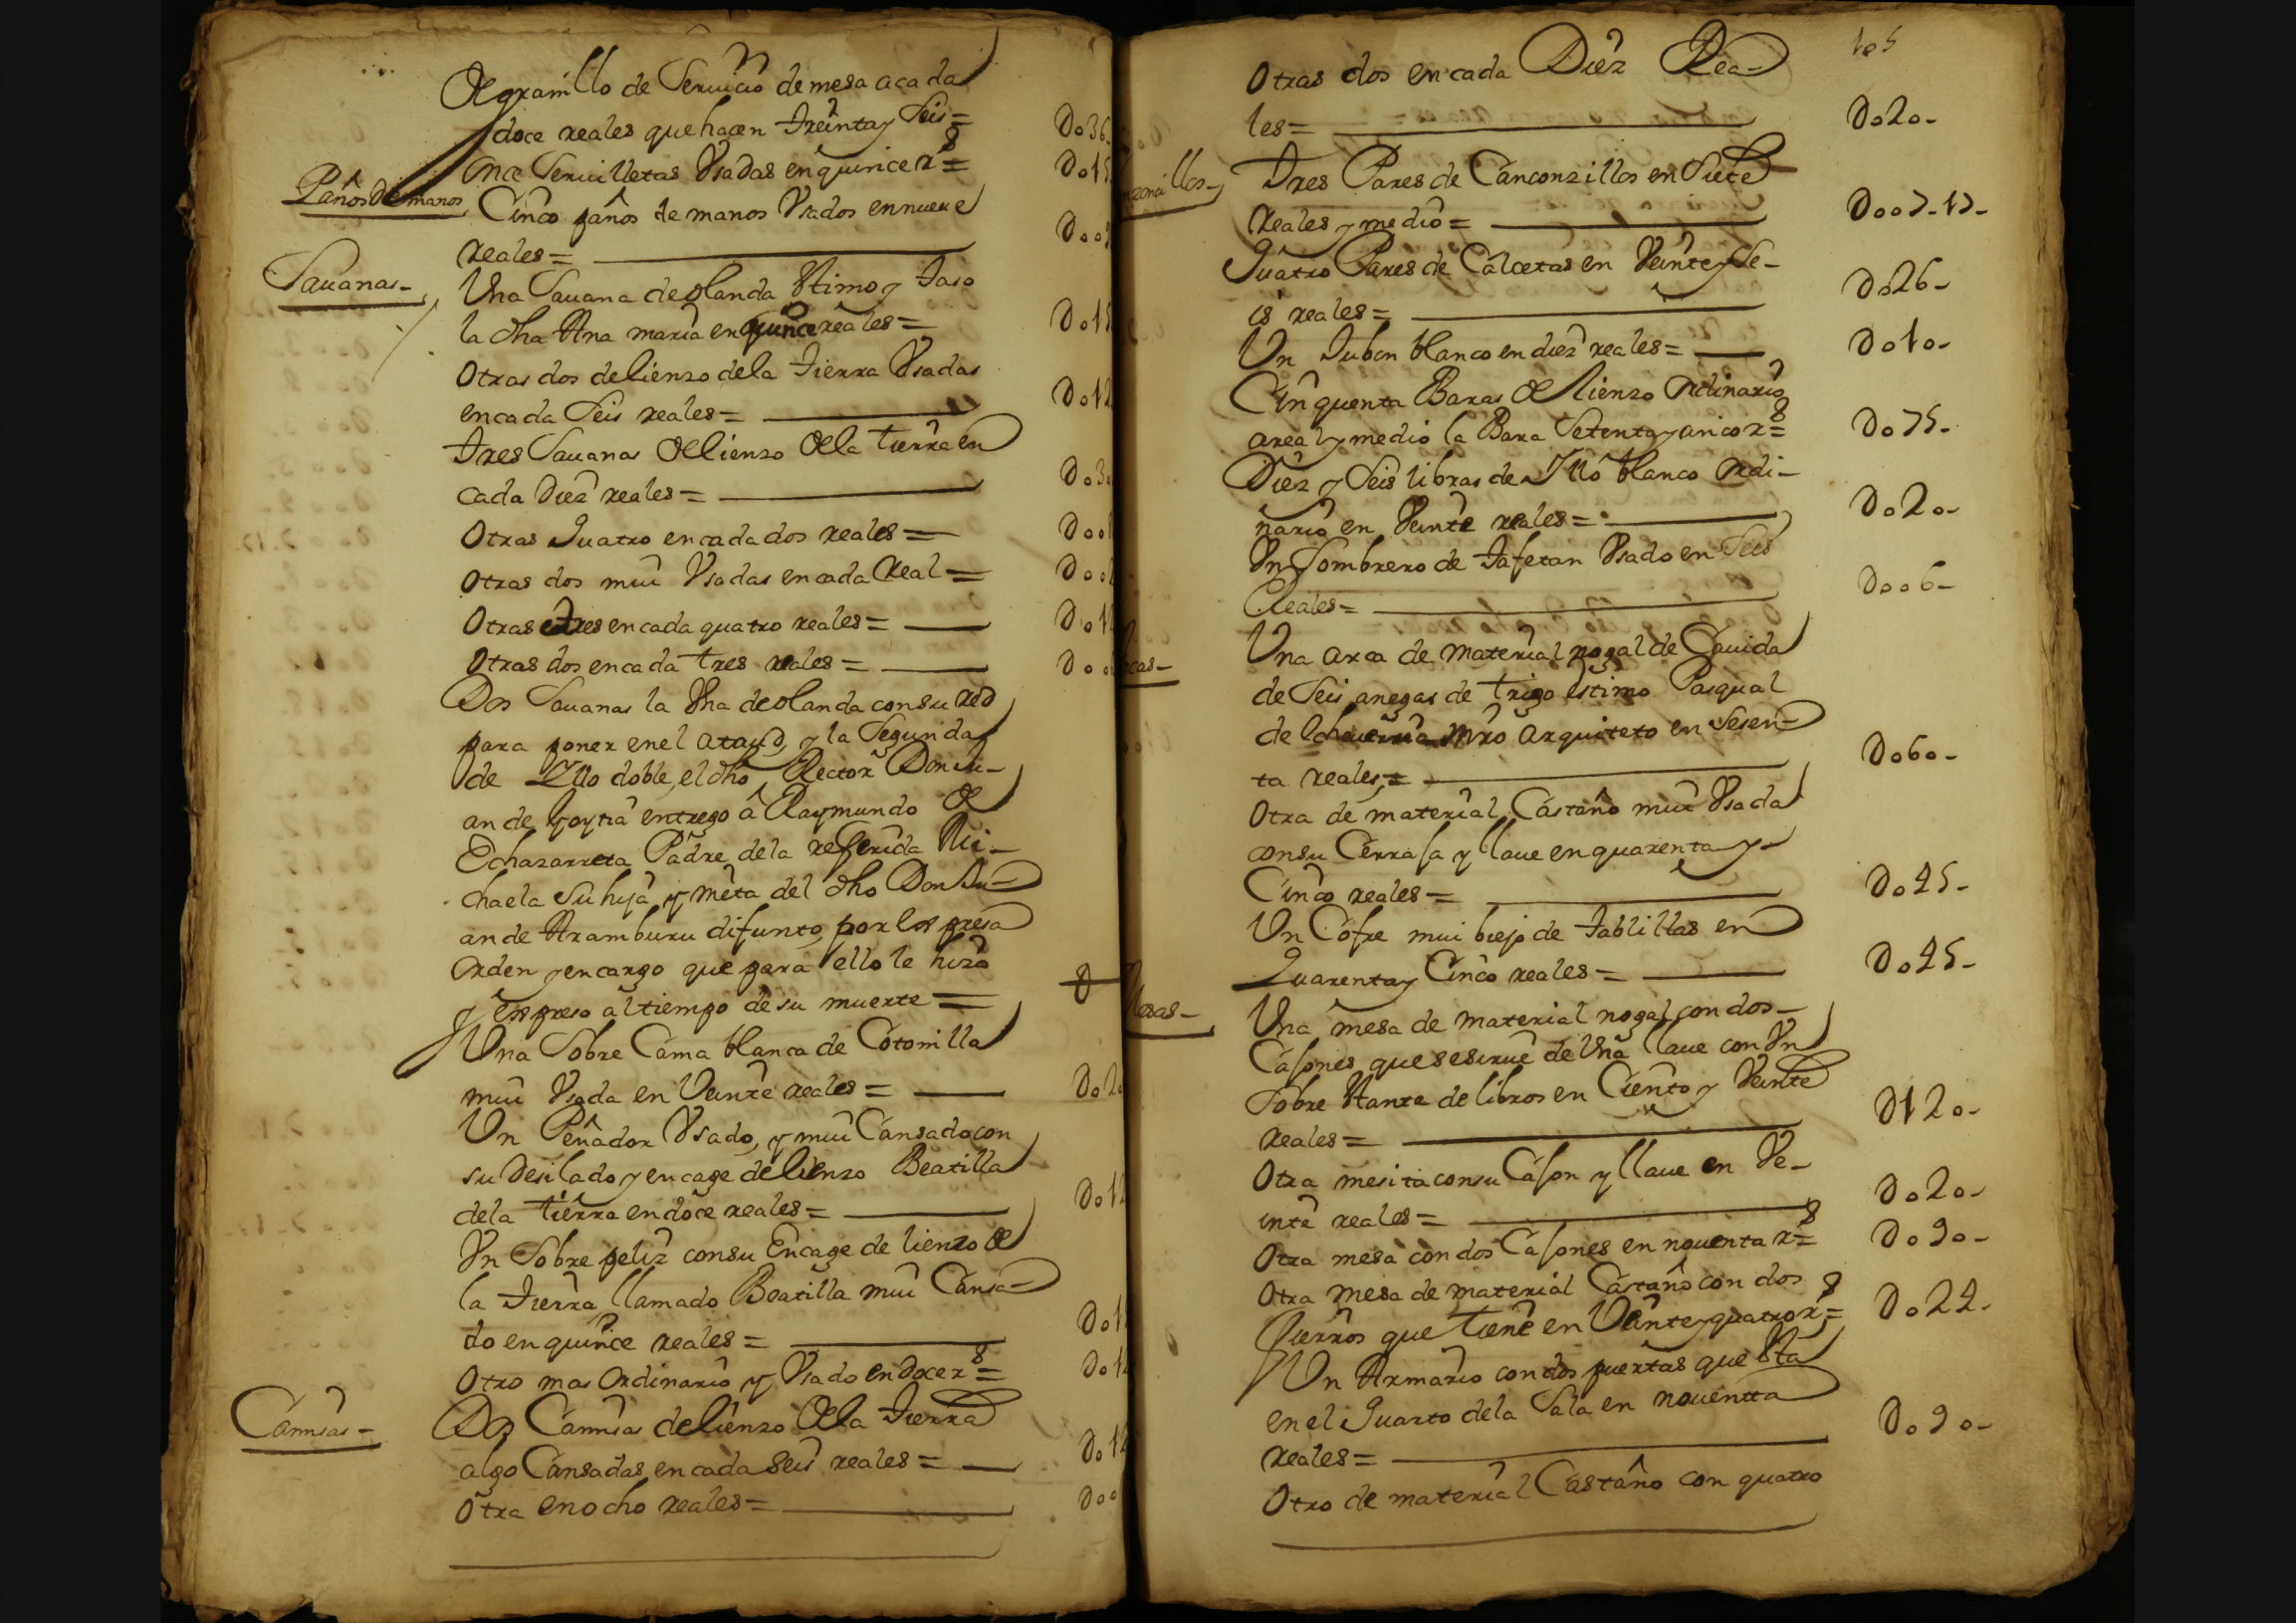 de gramillo de Seruicio de mesa acada
doce reales que hacen Treinta y Seis = Do36
once Seruilletas Vsadas en quince rs = Do15
Paños de manos
Cinco paños de manos Vsados en nueue
reales = Doo9
Sauanas
Una Sauana de olanda Stimo y Taso
la dha Ana maria en quince reales = Do15
Otras dos de lienzo de la Tierra Vsadas
en cada Seis reales = Do12
Tres Sauanas de lienzo de la tierra en
cada Diez reales = Do30
Otras Quatro en cada dos reales = Doo
Otras dos mui Vsadas en cada Real = Doo
Otras tres en cada quatro reales = Do12
Otras dos en cada tres reales = Doo
Dos Sauanas la Vna de olanda con su red
para poner en el ataud, y la Segunda
de Yllo doble, el dho Rector Don Ju-
an de Goytia entrego a Raymundo de
Echazarreta Padre de la referida Mi-
chaela Su hija y meta del dho Don Ju-
an de Aramburu difunto, por los presa
orden y encargo que para ello le hizo
y expreso al tiempo de su muerte =
Una Sobre Cama blanca de Cotonilla
mui Vsada en Veinte reales = Do20
Un Peñador Vsado, y mui Cansado con
su Desilado y encage de lienzo Beatilla
de la tierra en doce reales = Do12
Vn Sobre peliz con su Encage de lienzo de
la Tierra llamado Beatilla mui Cansa-
do en quince reales = Do1
Otro mas Ordinario y Vsado en doce rs = Do12
Camisas
Dos Camisas de lienzo de la Tierra
algo Cansadas en cada seis reales = Do12
Otra en ocho reales = Doo
105
Otras dos en cada Diez Rea-
les = Do20-
Tres Pares de Canconzillos en Siete
Reales y medio = Doo7-17-
Quatro Pares de Calcetas en Veinte y Se-
is reales = Do26-
Un Jubon blanco en diez reales = Do10-
Cinquenta Baras de lienzo ordinario
a real y medio la Bara Setenta y cinco rs = Do75-
Diez y Seis libras de Yllo blanco ordi-
nario en Veinte reales = Do20-
Vn Sombrero de Tafetan Vsado en Seis
Reales = Doo6-
cas-
Una arca de material nogal de Cauida
de Seis anegas de trigo estimo Pasqual
de Echauerria Mro Arquiteto en Sesen-
ta reales = Do60-
Otra de material Castaño mui Vsada
con su Cerrasa y llaue en quarenta y
Cinco reales = Do45-
Un Cofre mui biejo de Tablillas en
Quarenta y Cinco reales = Do45-
Mesas-
Una mesa de material nogal con dos
Casones que se sirue de Vna llaue con Vn
Sobre Stante de libros en Ciento y Veinte
Reales = D120-
Otra mesita con su Cason y llaue en Ve-
inte reales = Do20-
Otra mesa con dos Casones en nouenta rs = Do90-
Otra mesa de material Castaño con dos
Fierros que tiene en Veinte y quatro rs = Do24-
Un Armario con dos puertas que Sta
en el Quarto de la Sala en nouentta
Reales = Do90-
Otro de material Castaño con quatro